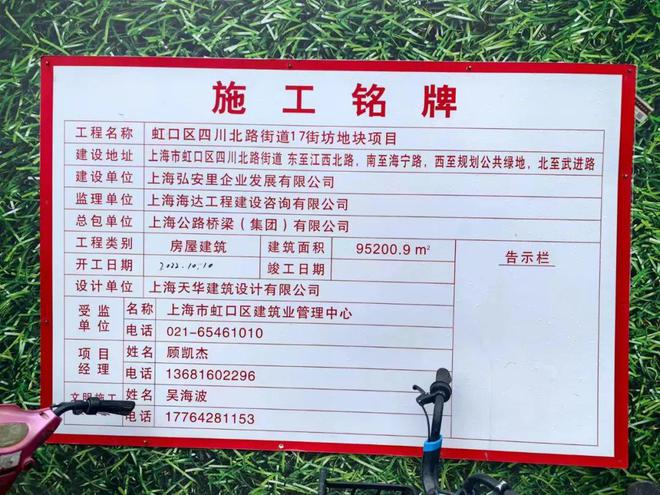 施工铭牌
工程名称 虹口区四川北路街道17街坊地块项目
建设地址 上海市虹口区四川北路街道 东至江西北路，南至海宁路，西至规划公共绿地，北至武进路
建设单位 上海弘安里企业发展有限公司
监理单位 上海海达工程建设咨询有限公司
总包单位 上海公路桥梁（集团）有限公司
工程类别 房屋建筑 建筑面积 95200.9 m²
告示栏
开工日期 2022.10.10 竣工日期
设计单位 上海天华建筑设计有限公司
受监单位 名称 上海市虹口区建筑业管理中心
电话 021-65461010
项目经理 姓名 顾凯杰
电话 13681602296
文明施工 姓名 吴海波
电话 17764281153